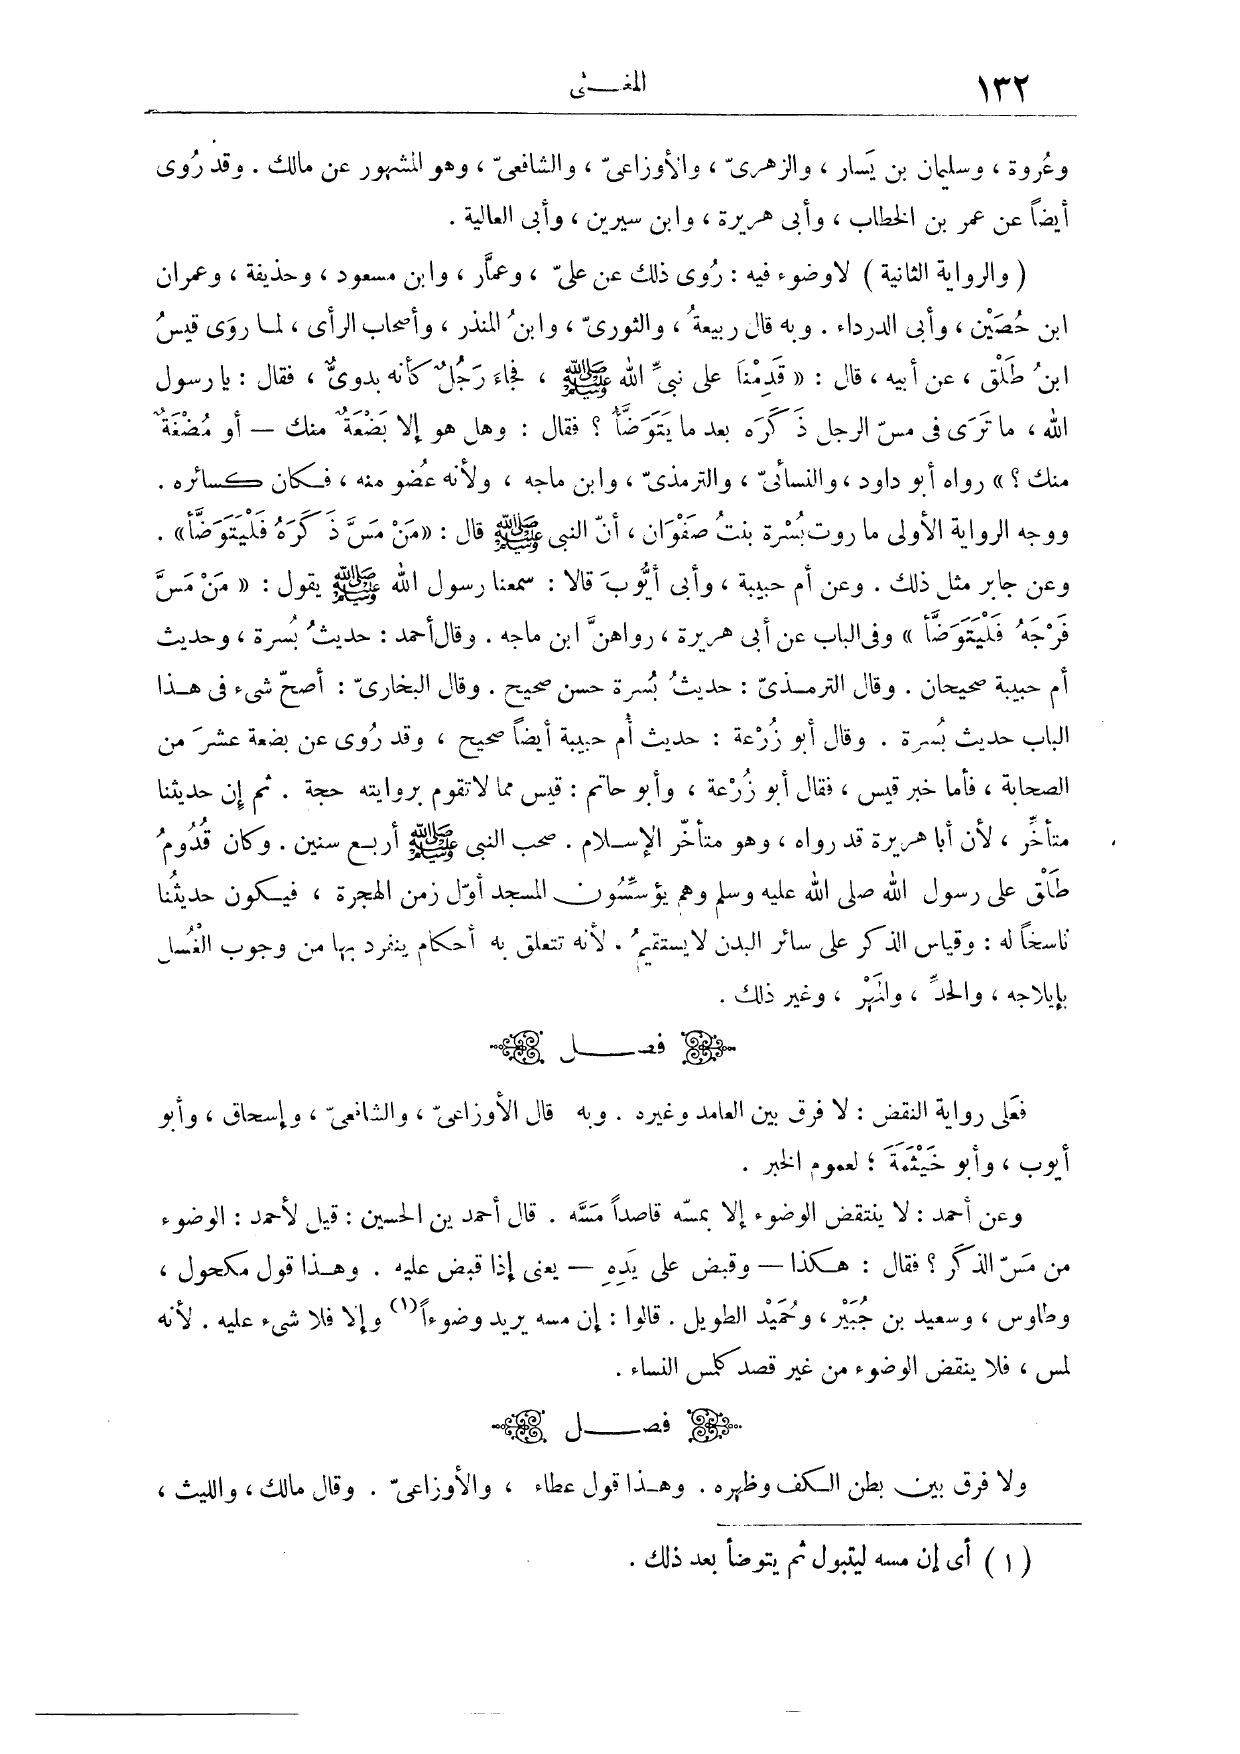 ١٣٢ المغـــنى
وعُروة ، وسليمان بن يَسار ، والزهرىّ ، والأوزاعىّ ، والشافعىّ ، وهو المشهور عن مالك . وقد رُوى
أيضاً عن عمر بن الخطاب ، وأبى هريرة ، وابن سيرين ، وأبى العالية .
( والرواية الثانية ) لاوضوء فيه : رُوى ذلك عن علىّ ، وعمَّار ، وابن مسعود ، وحذيفة ، وعمران
ابن حُصَيْن ، وأبى الدرداء . وبه قال ربيعةُ ، والثورىّ ، وابنُ المنذر ، وأصحاب الرأى ، لمـا روَى قيسُ
ابنُ طَلْق ، عن أبيه ، قال : « قَدِمْنَا على نبىِّ الله ﷺ ، فجاءَ رَجُلٌ كأنه بدوىٌّ ، فقال : يا رسول
الله ، ما تَرَى فى مسّ الرجل ذَكَرَه بعد ما يَتَوَضَّأُ ؟ فقال : وهل هو إلا بَضْعَةٌ منك — أو مُضْغَةٌ
منك ؟ » رواه أبو داود ، والنسائىّ ، والترمذىّ ، وابن ماجه ، ولأنه عُضو منه ، فـكان كـسائره .
ووجه الرواية الأولى ما روت بُسْرة بنتُ صَفْوَان ، أنّ النبى ﷺ قال : «مَنْ مَسَّ ذَكَرَهُ فَلْيَتَوَضَّأْ» .
وعن جابر مثل ذلك . وعن أم حبيبة ، وأبى أيُّوبَ قالا : سمعنا رسول الله ﷺ يقول : « مَنْ مَسَّ
فَرْجَهُ فَلْيَتَوَضَّأْ » وفى الباب عن أبى هريرة ، رواهنَّ ابن ماجه . وقال أحمد : حديثُ بُسرة ، وحديث
أم حبيبة صحيحان . وقال الترمـذىّ : حديثُ بُسرة حسن صحيح . وقال البخارىّ : أصحّ شىء فى هـذا
الباب حديث بُسرة . وقال أبو زُرْعة : حديث أُم حبيبة أيضاً صحيح ، وقد رُوى عن بضعة عشرَ من
الصحابة ، فأما خبر قيس ، فقال أبو زُرْعة ، وأبو حاتم : قيس مما لا تقوم بروايته حجة . ثم إن حديثنا
متأخِّر ، لأن أبا هريرة قد رواه ، وهو متأخّر الإسـلام . صحب النبى ﷺ أربـع سنين . وكان قُدُومُ
طَلْق على رسول الله صلى الله عليه وسلم وهم يؤسِّسُون المسجد أوّل زمن الهجرة ، فيـكون حديثُنا
ناسخاً له : وقياس الذكر على سائر البدن لا يستقيمُ . لأنه تتعلق به أحكام ينفرد بها من وجوب الْغُسل
بإيلاجه ، والحدِّ ، والمَهْر ، وغير ذلك .
فصــــل
فعَلى رواية النقض : لا فرق بين العامد وغيره . وبه قال الأوزاعىّ ، والشافعىّ ، وإسحاق ، وأبو
أيوب ، وأبو خَيْثَمَةَ ؛ لعموم الخبر .
وعن أحمد : لا ينتقض الوضوء إلا بمسّه قاصداً مَسَّه . قال أحمد بن الحسين : قيل لأحمد : الوضوء
من مَسّ الذكَر ؟ فقال : هـكذا — وقبض على يَدِهِ — يعنى إذا قبض عليه . وهـذا قول مكحول ،
وطاوس ، وسعيد بن جُبَيْر ، وحُمَيْد الطويل . قالوا : إن مسه يريد وضوءاً(١) وإلا فلا شىء عليه . لأنه
لمس ، فلا ينقض الوضوء من غير قصد كلمس النساء .
فصــــل
ولا فرق بين بطن الـكف وظهره . وهـذا قول عطاء ، والأوزاعىّ . وقال مالك ، والليث ،
( ١ ) أى إن مسه ليتبول ثم يتوضأ بعد ذلك .